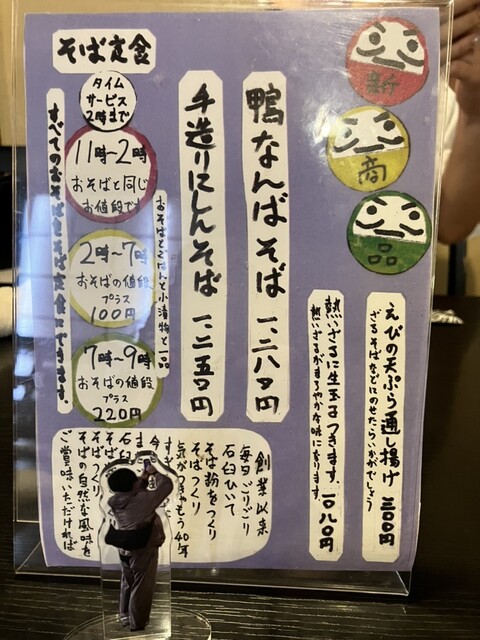 新
商
品
えびの天ぷら通し揚げ 三〇〇円
ざるそばなどにのせたらいかがでしょう
熱いざるに生玉子つきます。一〇八〇円
熱いざるがまろやかな味になります。
鴨なんばそば 一、二八〇円
手造りにしんそば 一、二五〇円
そば定食
タイム
サービス
2時まで
11時〜2時
おそばと同じ
お値段です
2時〜7時
おそばの値段
プラス
100円
7時〜9時
おそばの値段
プラス
220円
おそばとごはんと小漬物と一品
すべてのおそばをそば定食にできます。
創業以来
毎日ごりごり
石臼ひいて
そば粉をつくり
そばつくり
気がつきゃもう40年
今
石臼
そばつくり
そばの自然な風味を
ご賞味いただければ